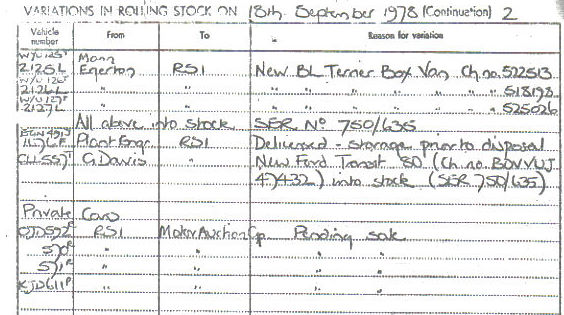 VARIATIONS IN ROLLING STOCK ON 18th September 1978 (Continuation) 2
Vehicle number From To Reason for variation
Mann
2125L Egerton RS1 New BL Terrier Box Van Ch.no. 522513
2126L " " " " " " " " 518198
2127L " " " " " " " " 525026
All above into stock SER No 750/635
1676F Plant Engr RS1 Delicensed - storage prior to disposal
G. Davis " New Ford Transit '80' (Ch.no. BDVVUJ
47432) into stock (SER 750/635)
Private Cars
OJD 572R RS1 Motor Auction Gp. Pending sale
570R " " " "
571R " " " "
KJD 611P " " " "